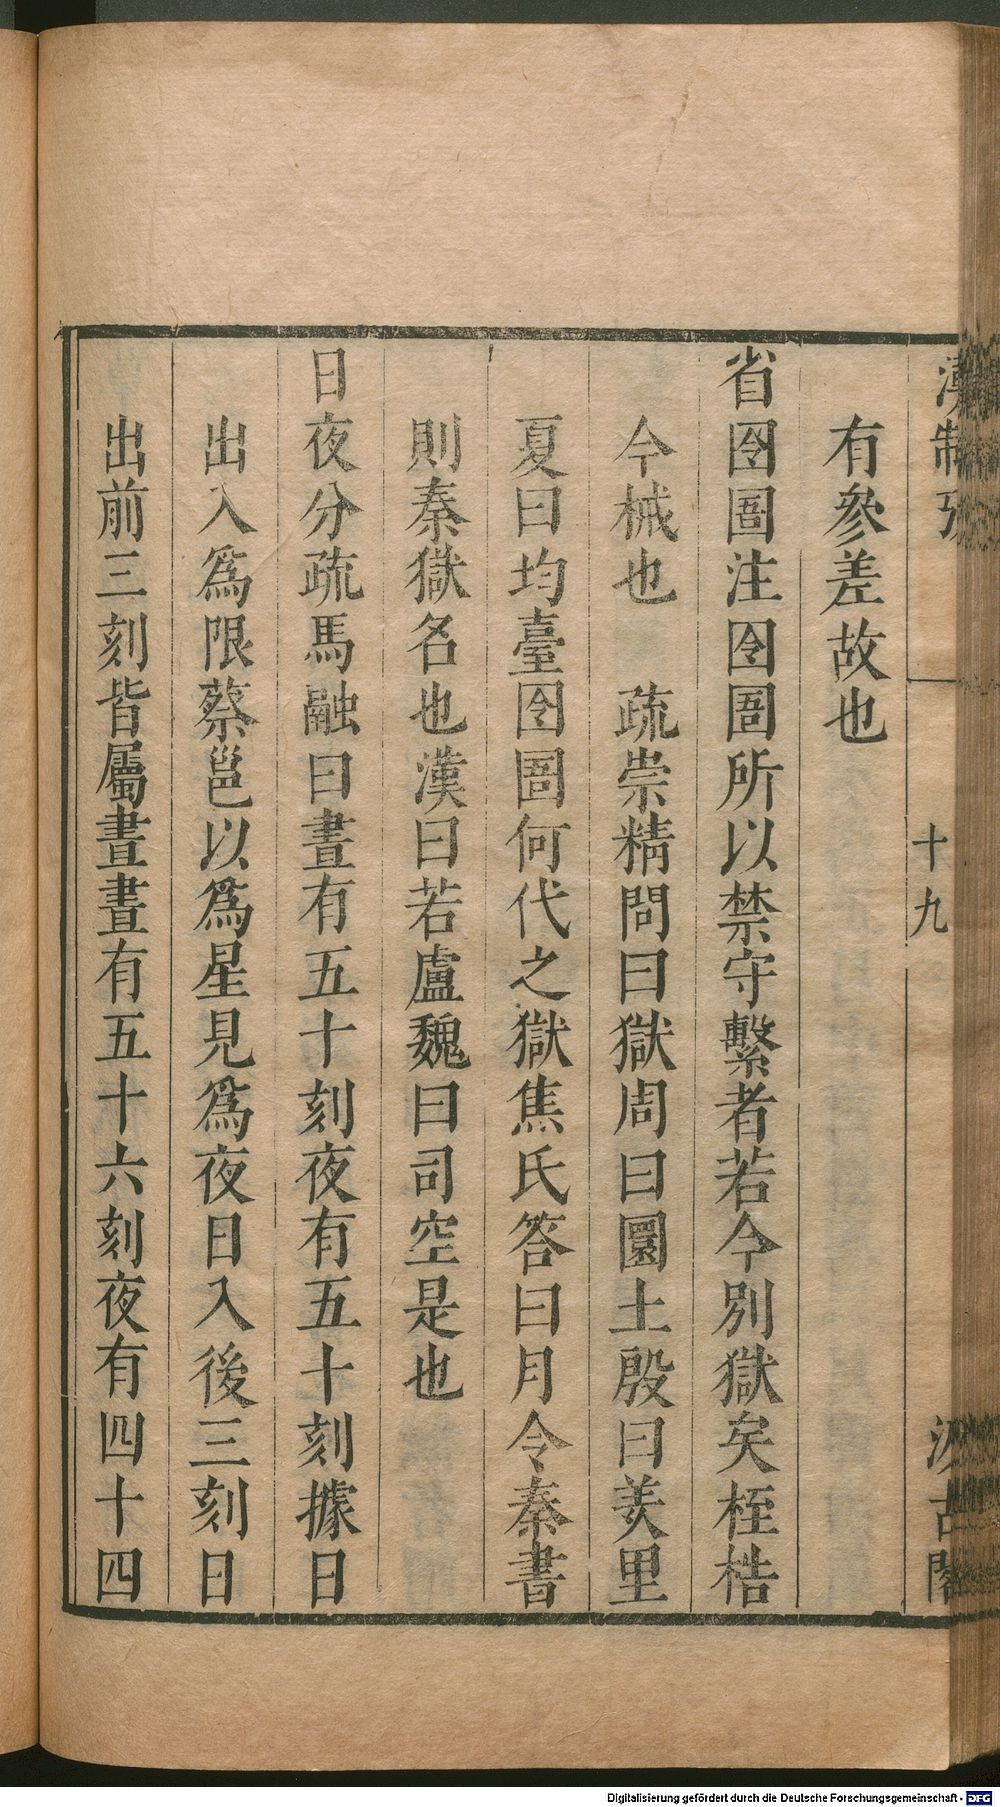 漢制攷
十九
汲古閣
有參差故也
省囹圄注囹圄所以禁守繫者若今別獄矣桎梏
今械也　疏崇精問曰獄周曰圜土殷曰羑里
夏曰均臺囹圄何代之獄焦氏答曰月令秦書
則秦獄名也漢曰若盧魏曰司空是也
日夜分疏馬融曰晝有五十刻夜有五十刻據日
出入爲限蔡邕以爲星見爲夜日入後三刻日
出前三刻皆屬晝晝有五十六刻夜有四十四
Digitalisierung gefördert durch die Deutsche Forschungsgemeinschaft - DFG